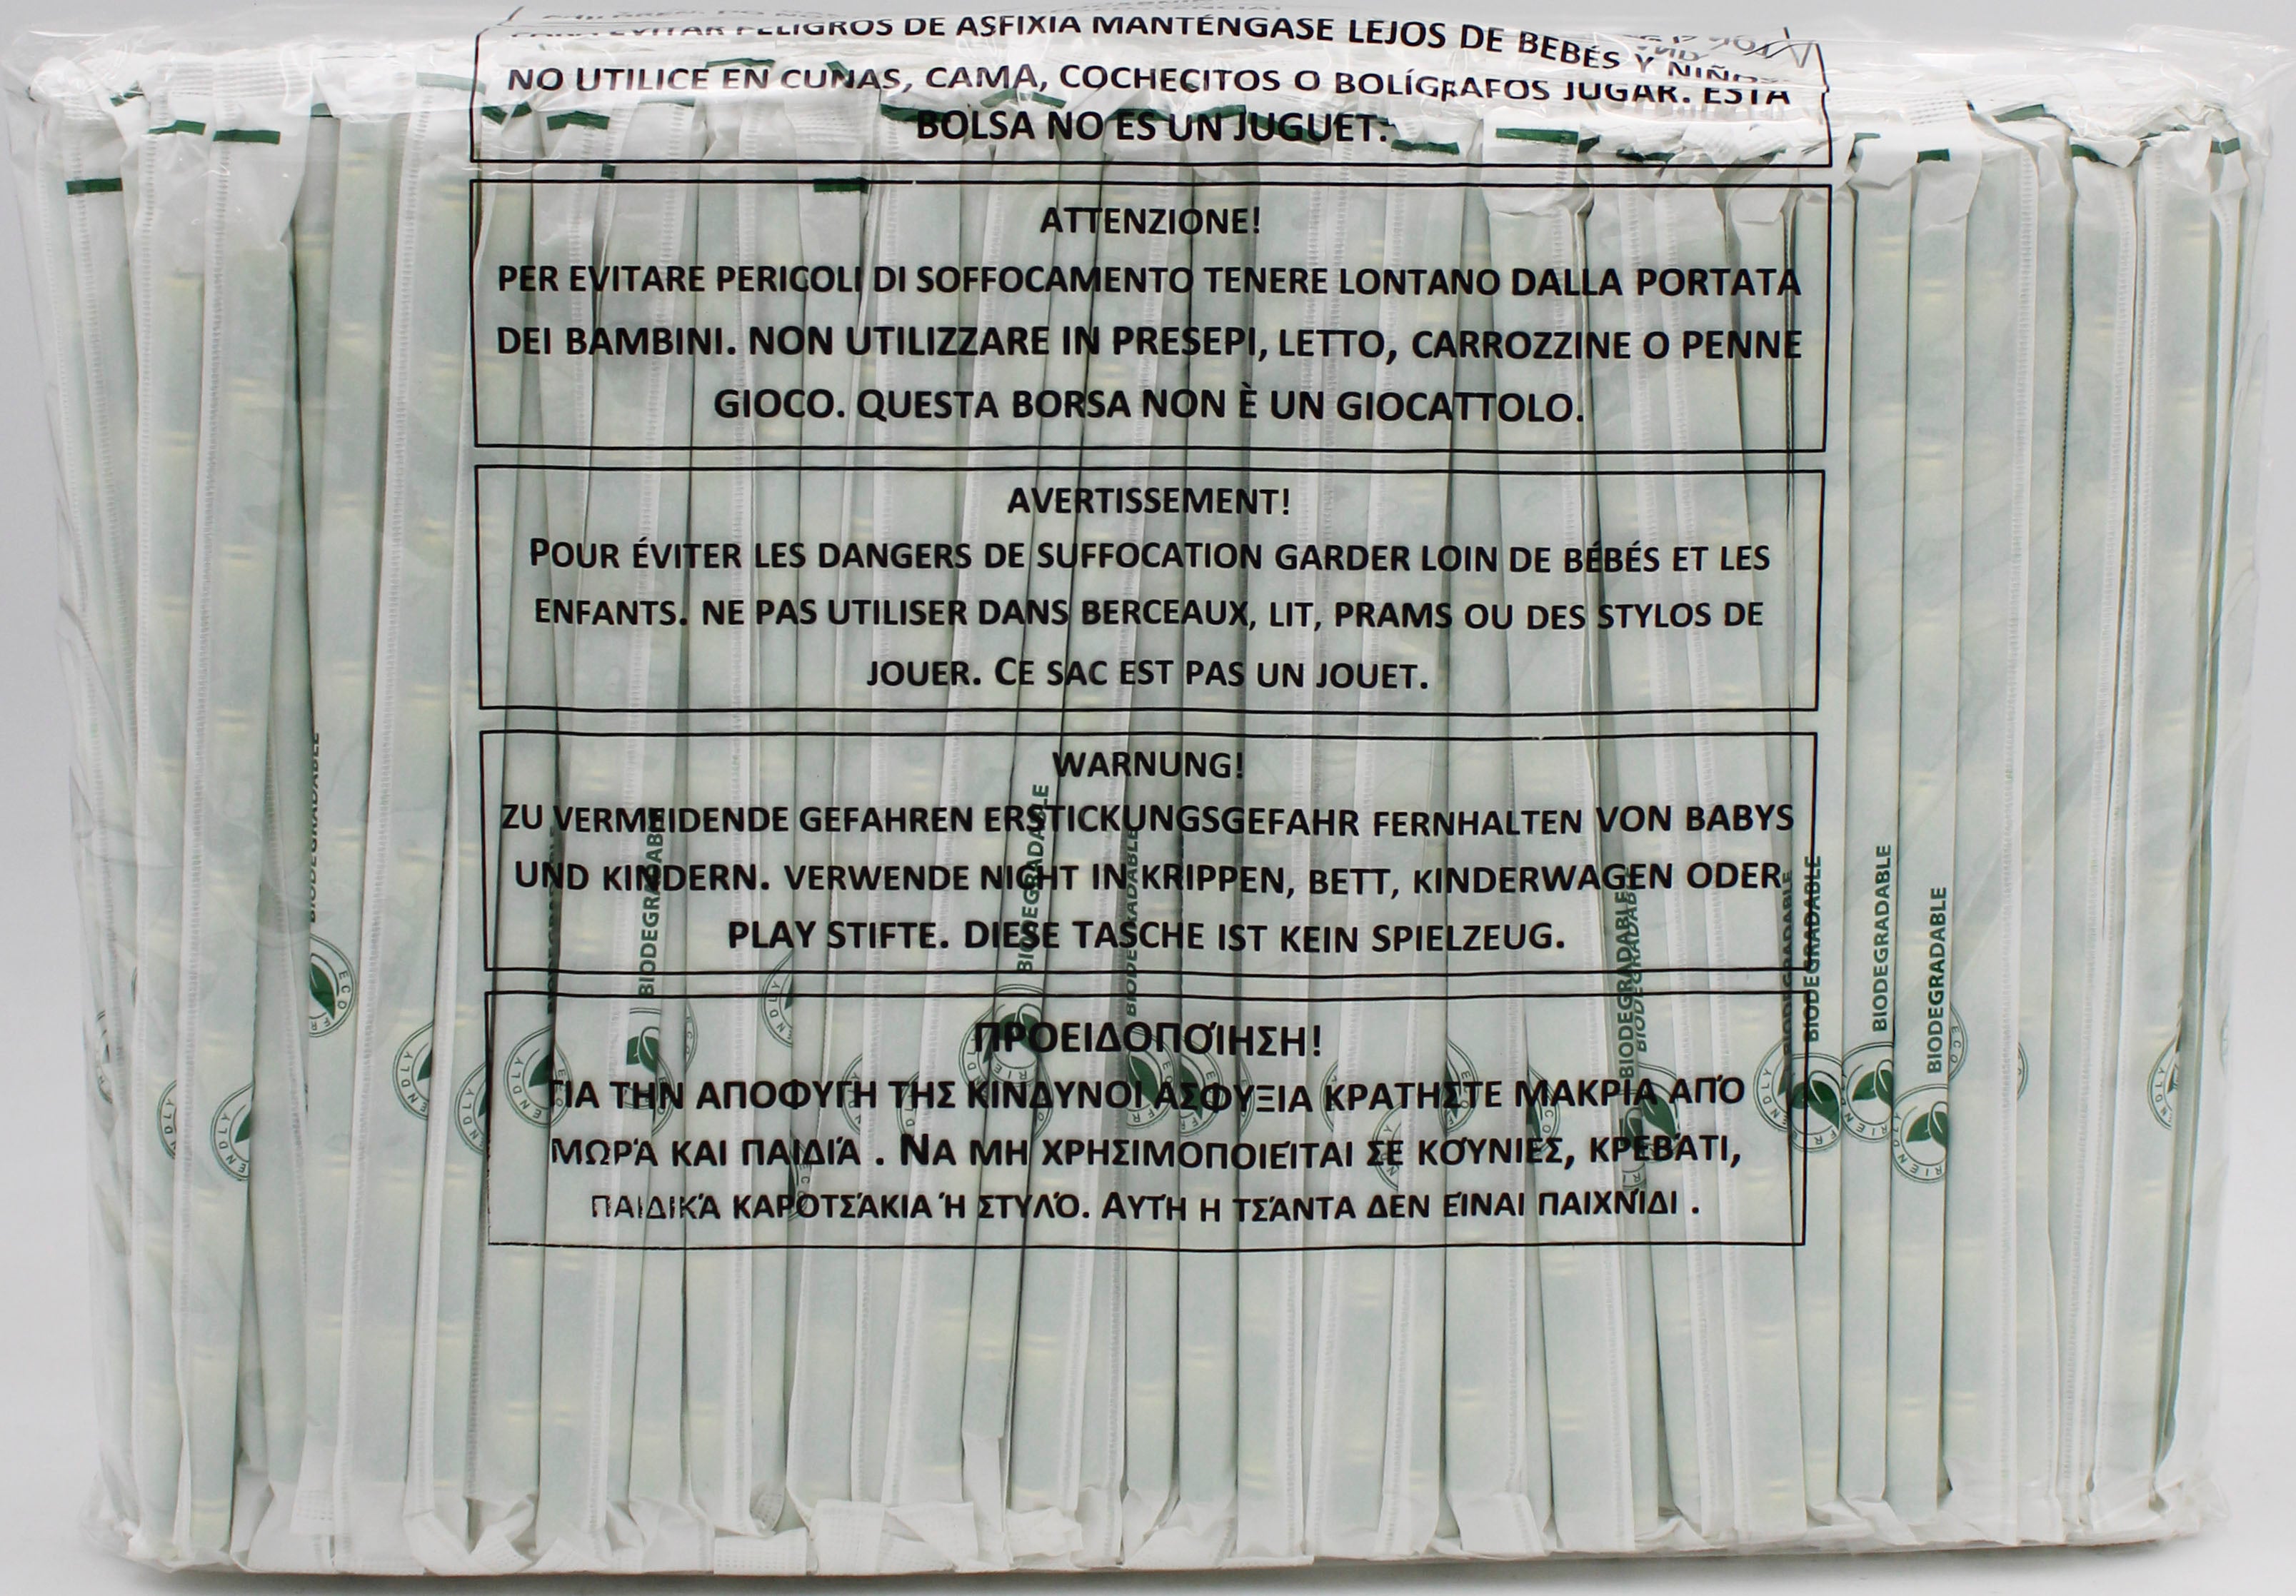 PARA EVITAR PELIGROS DE ASFIXIA MANTÉNGASE LEJOS DE BEBÉS Y NIÑOS.
NO UTILICE EN CUNAS, CAMA, COCHECITOS O BOLÍGRAFOS JUGAR. ESTA
BOLSA NO ES UN JUGUET.
ATTENZIONE!
PER EVITARE PERICOLI DI SOFFOCAMENTO TENERE LONTANO DALLA PORTATA
DEI BAMBINI. NON UTILIZZARE IN PRESEPI, LETTO, CARROZZINE O PENNE
GIOCO. QUESTA BORSA NON È UN GIOCATTOLO.
AVERTISSEMENT!
POUR ÉVITER LES DANGERS DE SUFFOCATION GARDER LOIN DE BÉBÉS ET LES
ENFANTS. NE PAS UTILISER DANS BERCEAUX, LIT, PRAMS OU DES STYLOS DE
JOUER. CE SAC EST PAS UN JOUET.
WARNUNG!
ZU VERMEIDENDE GEFAHREN ERSTICKUNGSGEFAHR FERNHALTEN VON BABYS
UND KINDERN. VERWENDE NICHT IN KRIPPEN, BETT, KINDERWAGEN ODER
PLAY STIFTE. DIESE TASCHE IST KEIN SPIELZEUG.
ΠΡΟΕΙΔΟΠΟΊΗΣΗ!
ΓΙΑ ΤΗΝ ΑΠΟΦΥΓΉ ΤΗΣ ΚΙΝΔΥΝΟΙ ΑΣΦΥΞΊΑ ΚΡΑΤΗΣΤΕ ΜΑΚΡΙΑ ΑΠΌ
ΜΩΡΆ ΚΑΙ ΠΑΙΔΙΆ . ΝΑ ΜΗ ΧΡΗΣΙΜΟΠΟΙΕΊΤΑΙ ΣΕ ΚΟΎΝΙΕΣ, ΚΡΕΒΆΤΙ,
ΠΑΙΔΙΚΆ ΚΑΡΟΤΣΆΚΙΑ Ή ΣΤΥΛΌ. ΑΥΤΉ Η ΤΣΆΝΤΑ ΔΕΝ ΕΊΝΑΙ ΠΑΙΧΝΊΔΙ .
BIODEGRADABLE
BIODEGRADABLE
BIODEGRADABLE
BIODEGRADABLE
BIODEGRADABLE
BIODEGRADABLE
BIODEGRADABLE
BIODEGRADABLE
BIODEGRADABLE
ECO FRIENDLY